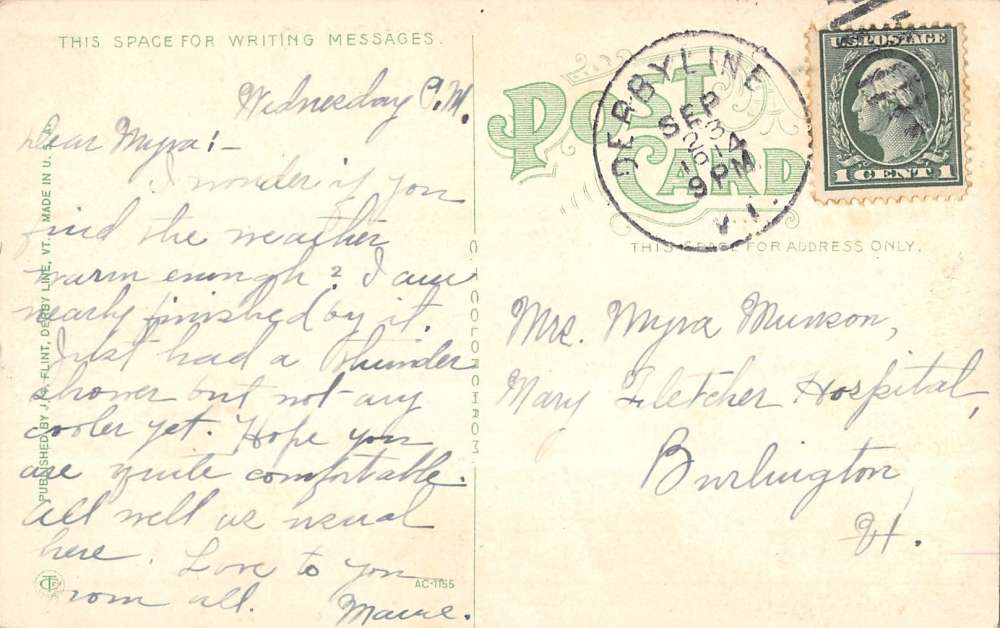 THIS SPACE FOR WRITING MESSAGES.
Wednesday P.M.
Dear Myra! —
I wonder if you
find the weather
warm enough? I am
nearly finished by it.
Just had a thunder
shower but not any
cooler yet. Hope you
are quite comfortable.
All well as usual
here. Love to you
from all.
PUBLISHED BY J. FLINT, DERBY LINE, VT. MADE IN U.
C. T. COLORCHROM.
AC-1155
POST CARD
DERBY LINE
SEP
23
1914
9 PM
VT.
U.S. POSTAGE
1 CENT 1
THIS SPACE FOR ADDRESS ONLY.
Mrs. Myra Munson,
Mary Fletcher Hospital,
Burlington
Vt.